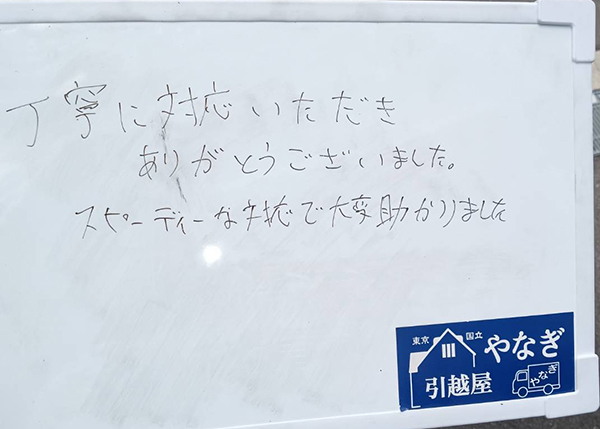 丁寧に対応いただき
ありがとうございました。
スピーディーな対応で大変助かりました
東京 国立 やなぎ
引越屋 やなぎ